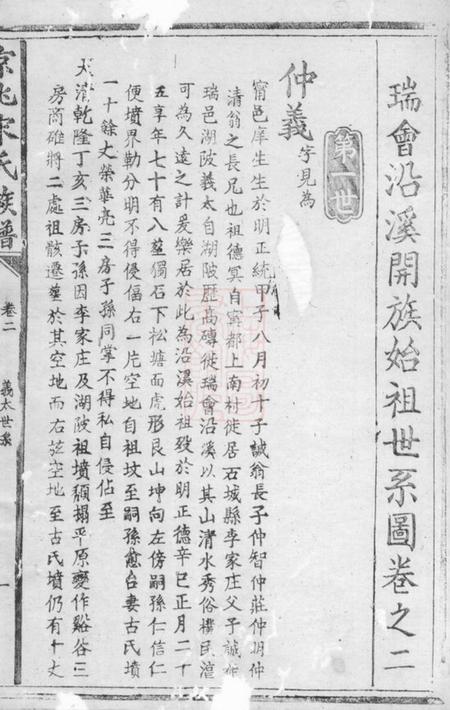 瑞會沿溪開族始祖世系圖卷之二
第一世
仲義字見為
甯邑庠生生於明正統甲子八月初十子誠翁長子仲智仲莊仲明仲
清翁之長兄也祖德冥自寧都上南村徙居石城縣李家庄父子誠
瑞邑湖陂義太自湖陂歷高磚徙瑞會沿溪以其山清水秀俗樸民
可為久遠之計爰樂居於此為沿溪始祖歿於明正德辛巳正月二十
五享年七十有八塟獨石下松塘面虎形艮山坤向左傍嗣孫仁信仁
便墳界勒分明不得侵偪右一片空地自祖坟至嗣孫愈台妻古氏墳
一十餘丈榮華亮三房子孫同掌不得私自侵佔至
大清乾隆丁亥三房子孫因李家庄及湖陂祖墳頹塌平原變作谿谷三
房商確將二處祖骸遷塟於其空地而右空地至古氏墳仍有十丈
宋氏族譜
卷二
義太世系
一